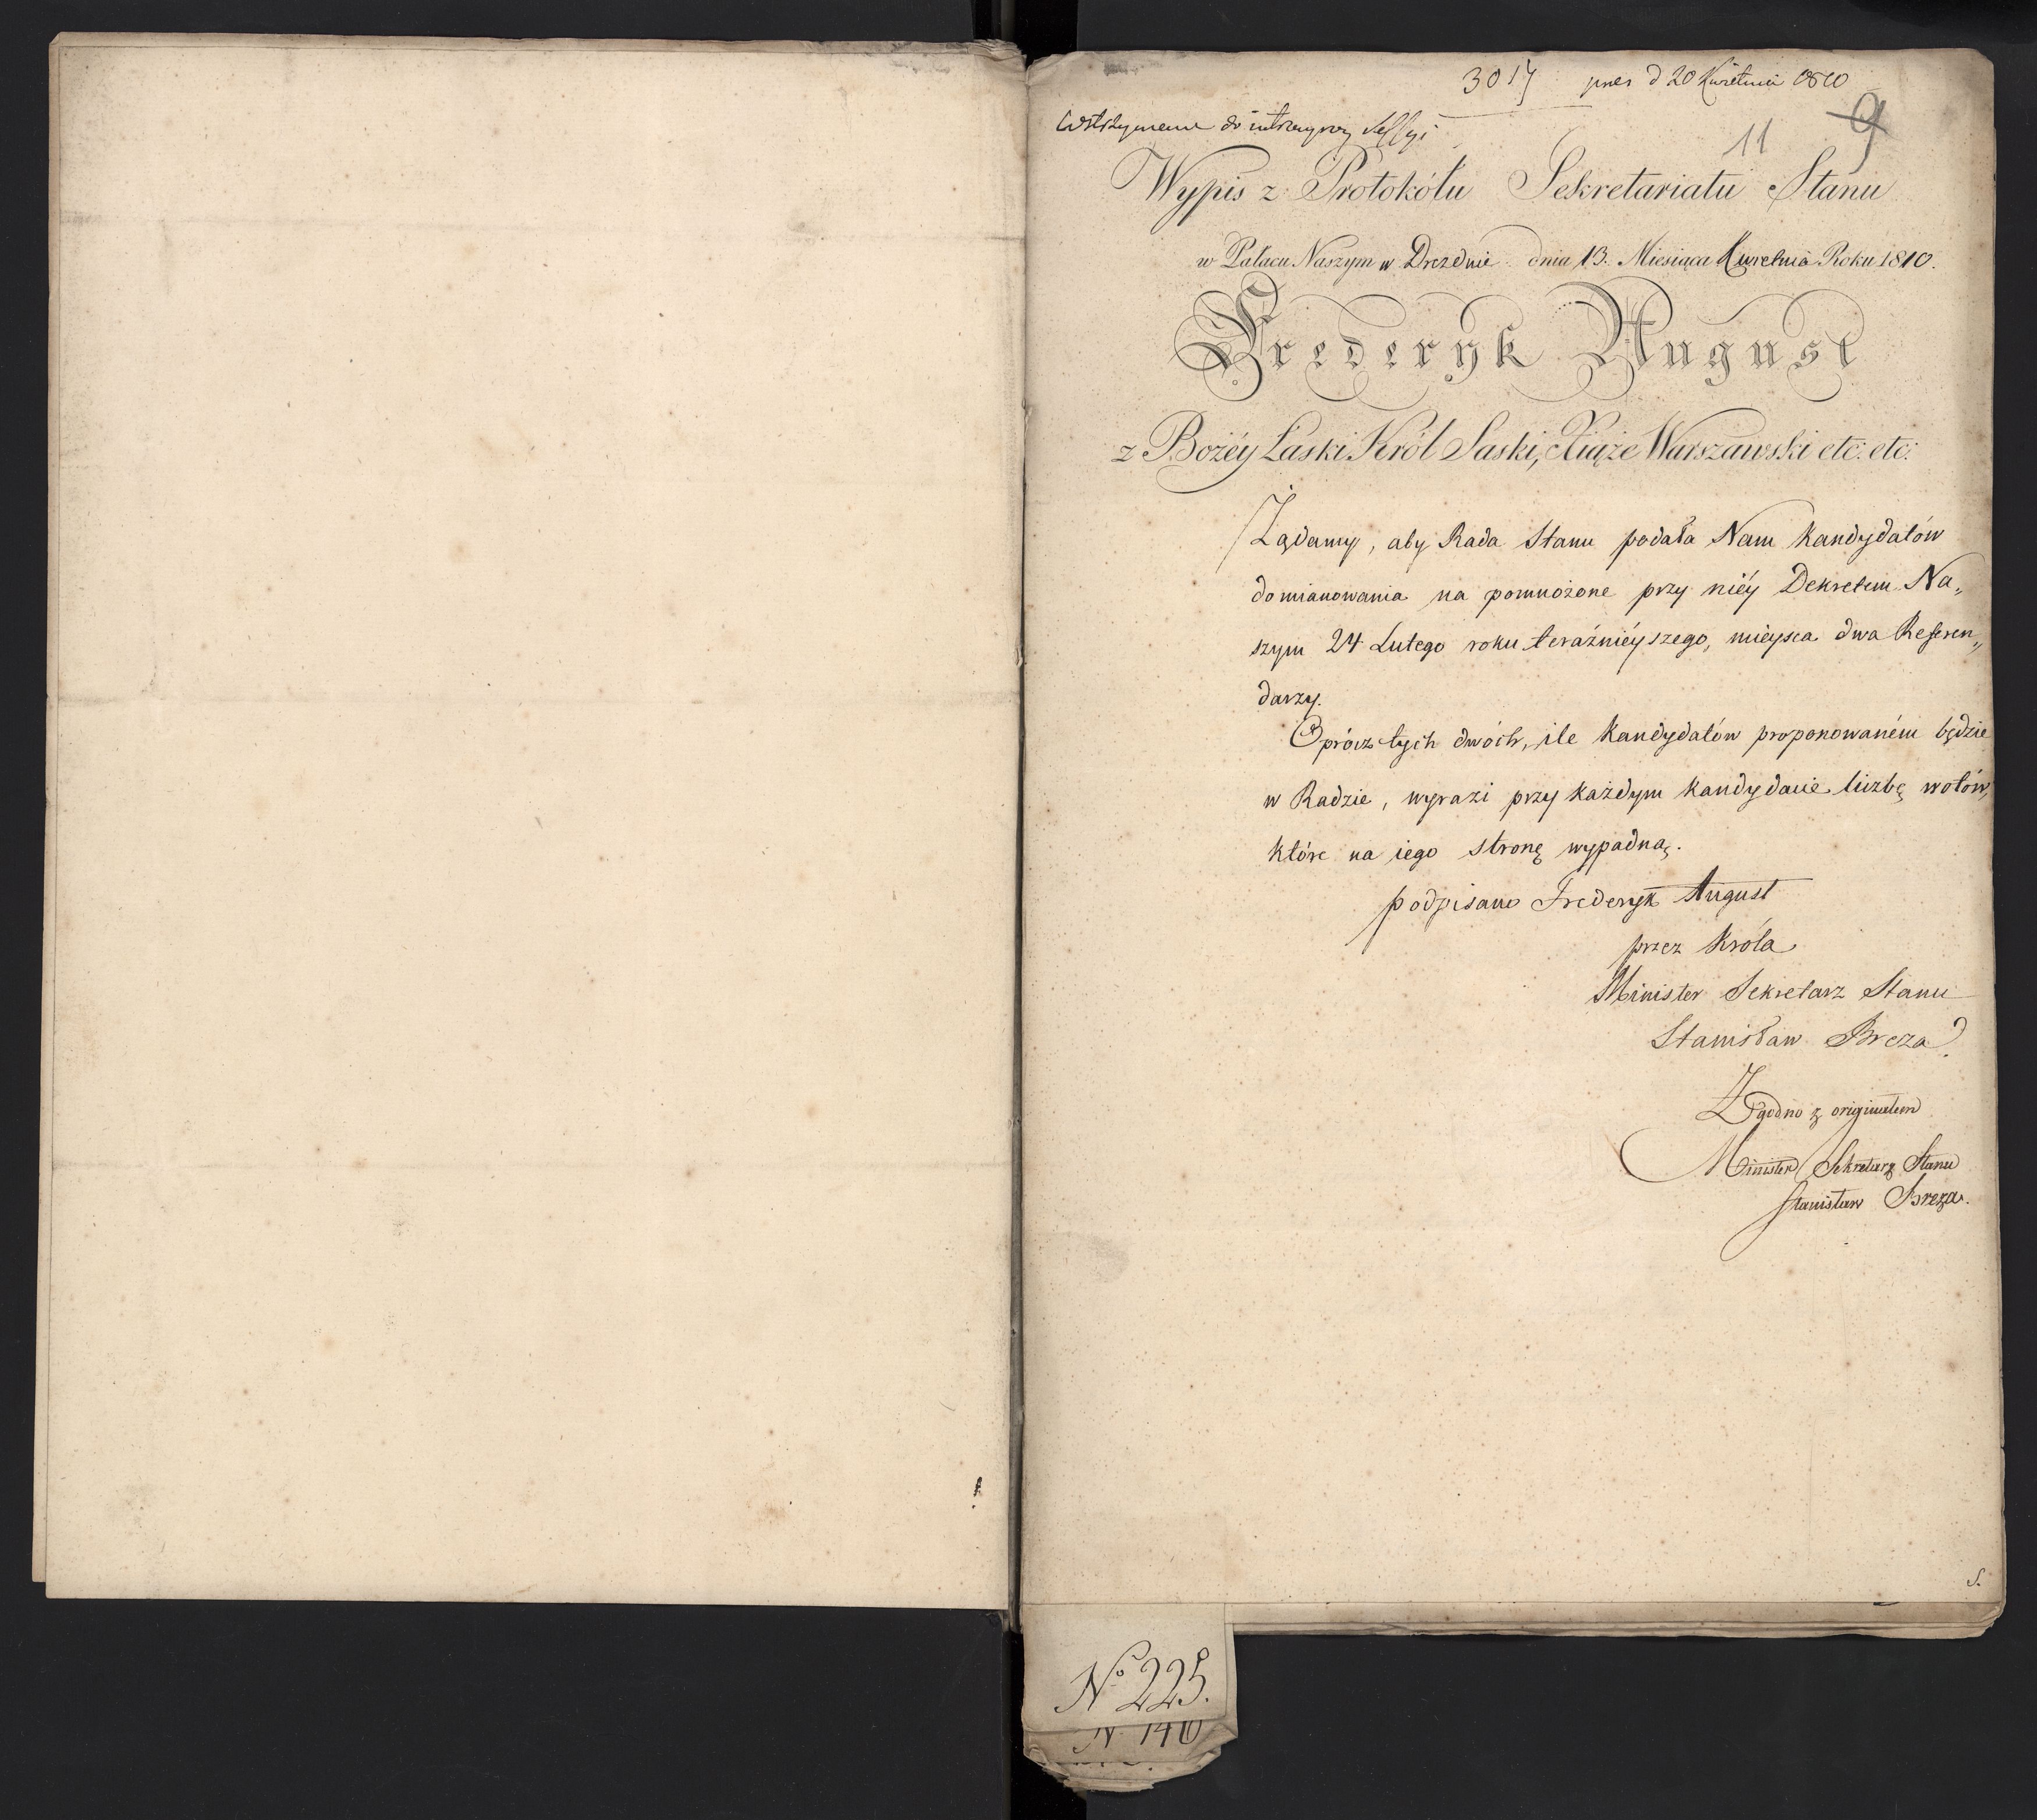 3017 pres d 20 Kwietnia 1810
Wstrzymane do iutrzeyszey Sessyi
11 9
Wypis z Protokółu Sekretariatu Stanu
w Pałacu Naszym w Dreźdnie dnia 13. Miesiąca Kwietnia Roku 1810.
Frederyk August
z Bożéy Łaski Król Saski, Xiąże Warszawski etc: etc:
Żądamy, aby Rada Stanu podała Nam Kandydatów
do mianowania na pomnożone przy niéy Dekretem Na„
szym 24 Lutego roku teraźniéyszego, mieysca dwa Referen„
darzy.
Oprócz tych dwóch, ile Kandydatów proponowaném będzie
w Radzie, wyrazi przy każdym Kandydacie liczbę wotów,
które na iego stronę wypadną.
podpisano Frederyk August
przez Króla
Minister Sekretarz Stanu
Stanisław Breza
Zgodno z originałem
Minister Sekretarz Stanu
Stanisław Breza.
S.
No 225.
N. 140